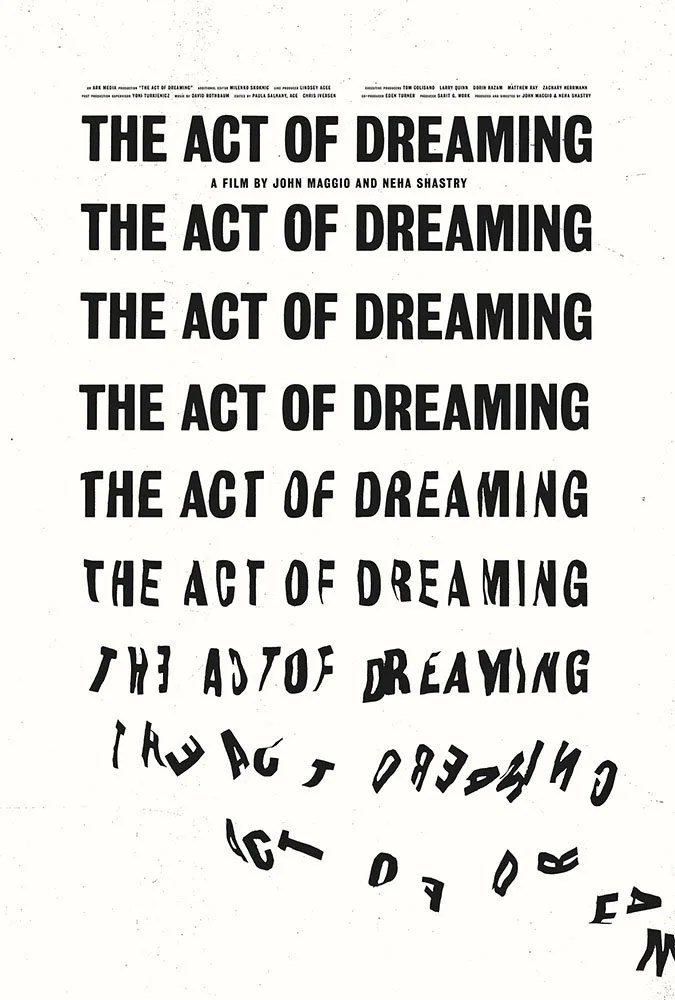 AN ARK MEDIA PRODUCTION "THE ACT OF DREAMING" ADDITIONAL EDITOR MILENKO SKOKNIC LINE PRODUCER LINDSEY AGEE
POST PRODUCTION SUPERVISOR YONI TURKIENICZ MUSIC BY DAVID ROTHBAUM EDITED BY PAULA SALHANY, ACE CHRIS IVERSEN
EXECUTIVE PRODUCERS TOM COLIGANO LARRY QUINN DORIN RAZAM MATTHEW RAY ZACHARY HERRMANN
CO-PRODUCER EDEN TURNER PRODUCER SARIT G. WORK PRODUCED AND DIRECTED BY JOHN MAGGIO & NEHA SHASTRY
THE ACT OF DREAMING
A FILM BY JOHN MAGGIO AND NEHA SHASTRY
THE ACT OF DREAMING
THE ACT OF DREAMING
THE ACT OF DREAMING
THE ACT OF DREAMING
THE ACT OF DREAMING
THE ACT OF DREAMING
THE ACT DREAMING
ACT OF DREAM